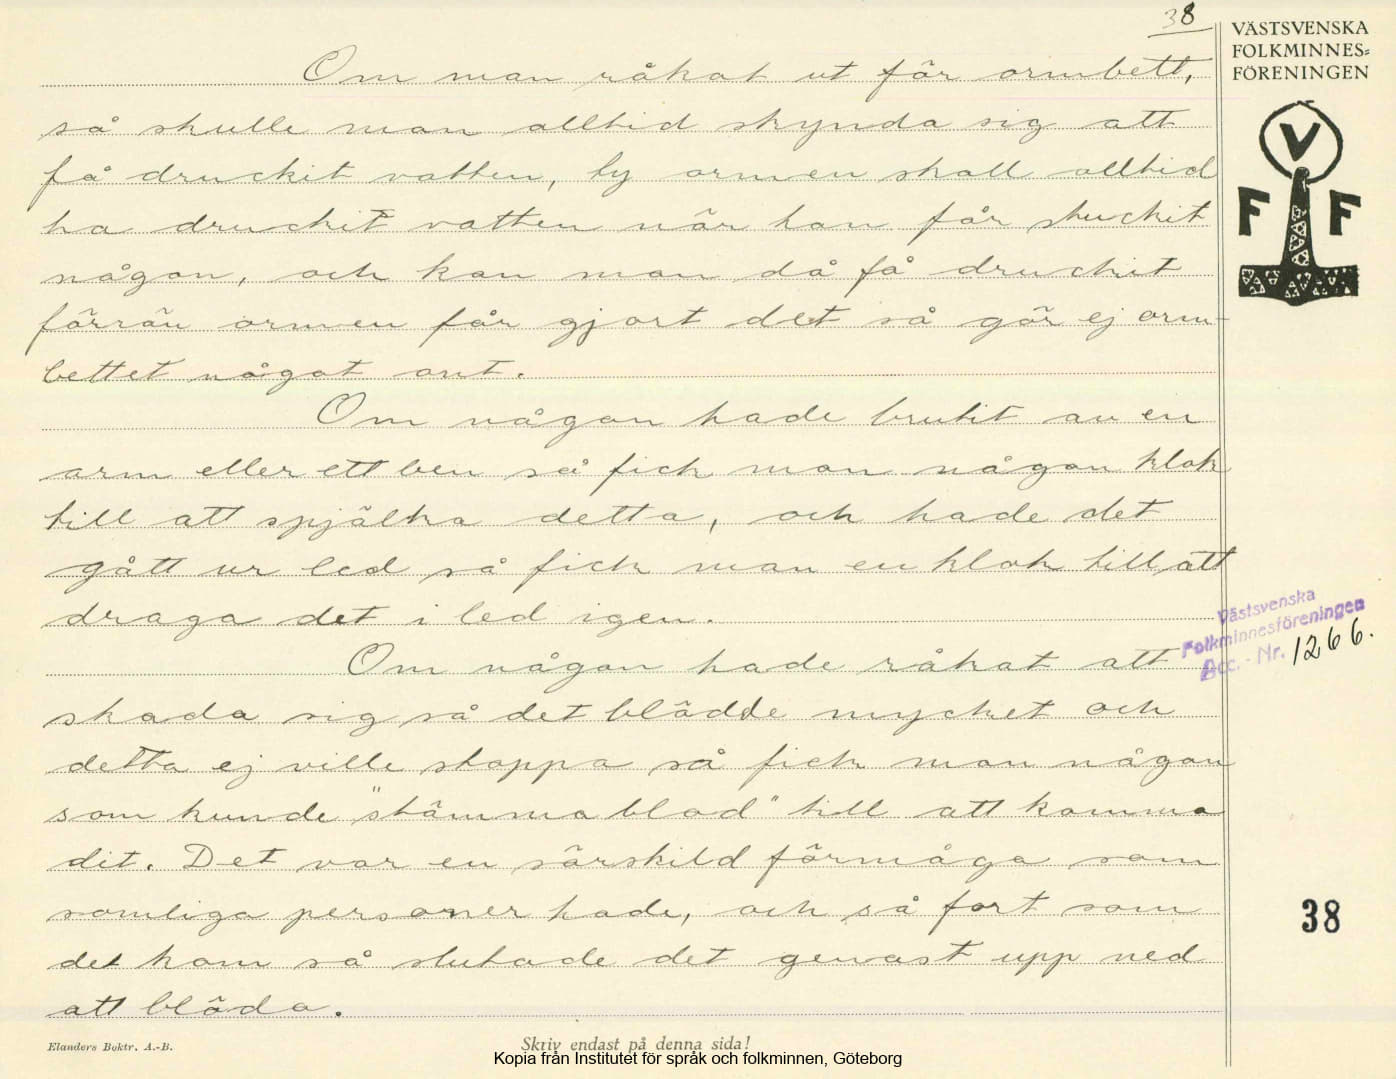 38
VÄSTSVENSKA
FOLKMINNES=
FÖRENINGEN
V
F F
Om man råkat ut för ormbett,
så skulle man alltid skynda sig att
få druckit vatten, ty ormen skall alltid
ha druckit vatten när han får stuckit
någon, och kan man då få druckit
förrän ormen får gjort det så gör ej orm-
bettet något ont.
Om någon hade brutit av en
arm eller ett ben så fick man någon klok
till att spjälka detta, och hade det
gått ur led så fick man en klok till att
draga det i led igen.
Om någon hade råkat att
skada sig så det blödde mycket och
detta ej ville stoppa så fick man någon
som kunde "stämma blod" till att komma
dit. Det var en särskild förmåga som
somliga personer hade, och så fort som
det kom så slutade det genast upp med
att blöda.
Västsvenska
Folkminnesföreningen
Acc. - Nr. 1266.
38
Elanders Boktr. A.-B.
Skriv endast på denna sida!
Kopia från Institutet för språk och folkminnen, Göteborg